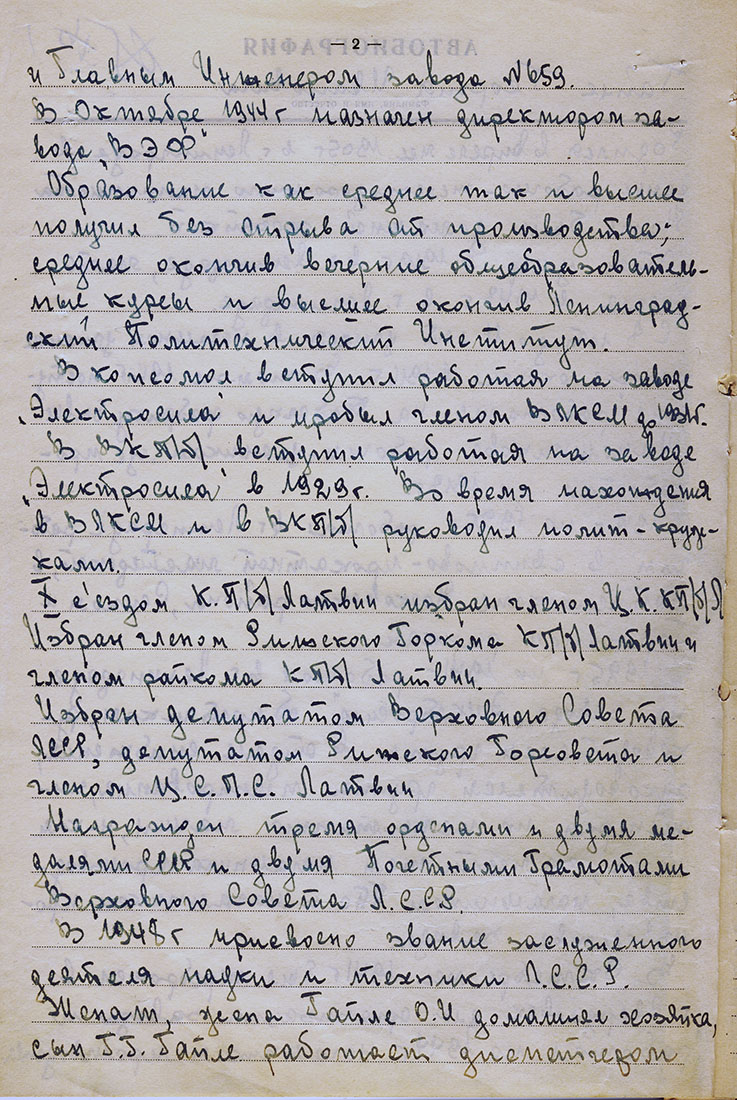 — 2 —
и Главным Инженером завода №659.
В Октябре 1944г назначен директором за-
вода „ВЭФ"
Образование как среднее так и высшее
получил без отрыва от производства;
среднее окончив вечерние общеобразователь-
ные курсы и высшее окончив Ленинград-
ский Политехнический Институт.
В комсомол вступил работая на заводе
„Электросила" и пробыл членом ВЛКСМ до 1931г.
В ВКП/б/ вступил работая на заводе
„Электросила" в 1929г. Во время нахождения
в ВЛКСМ и в ВКП/б/ руководил полит-круж-
ками.
X с'ездом К.П/б/ Латвии избран членом Ц.К. КП/б/Л
Избран членом Рижского Горкома КП/б/ Латвии и
членом райкома КП/б/ Латвии.
Избран депутатом Верховного Совета
ЛССР, депутатом Рижского Горсовета и
членом Ц.С.П.С. Латвии
Награжден тремя орденами и двумя ме-
далями СССР и двумя Почетными Грамотами
Верховного Совета Л.С.С.Р.
В 1948г присвоено звание заслуженного
деятеля науки и техники Л.С.С.Р.
Женат, жена Гайле О.И. домашняя хозяйка,
сын Г.Г. Гайле работает диспетчером
АВТОБИОГРАФИЯ